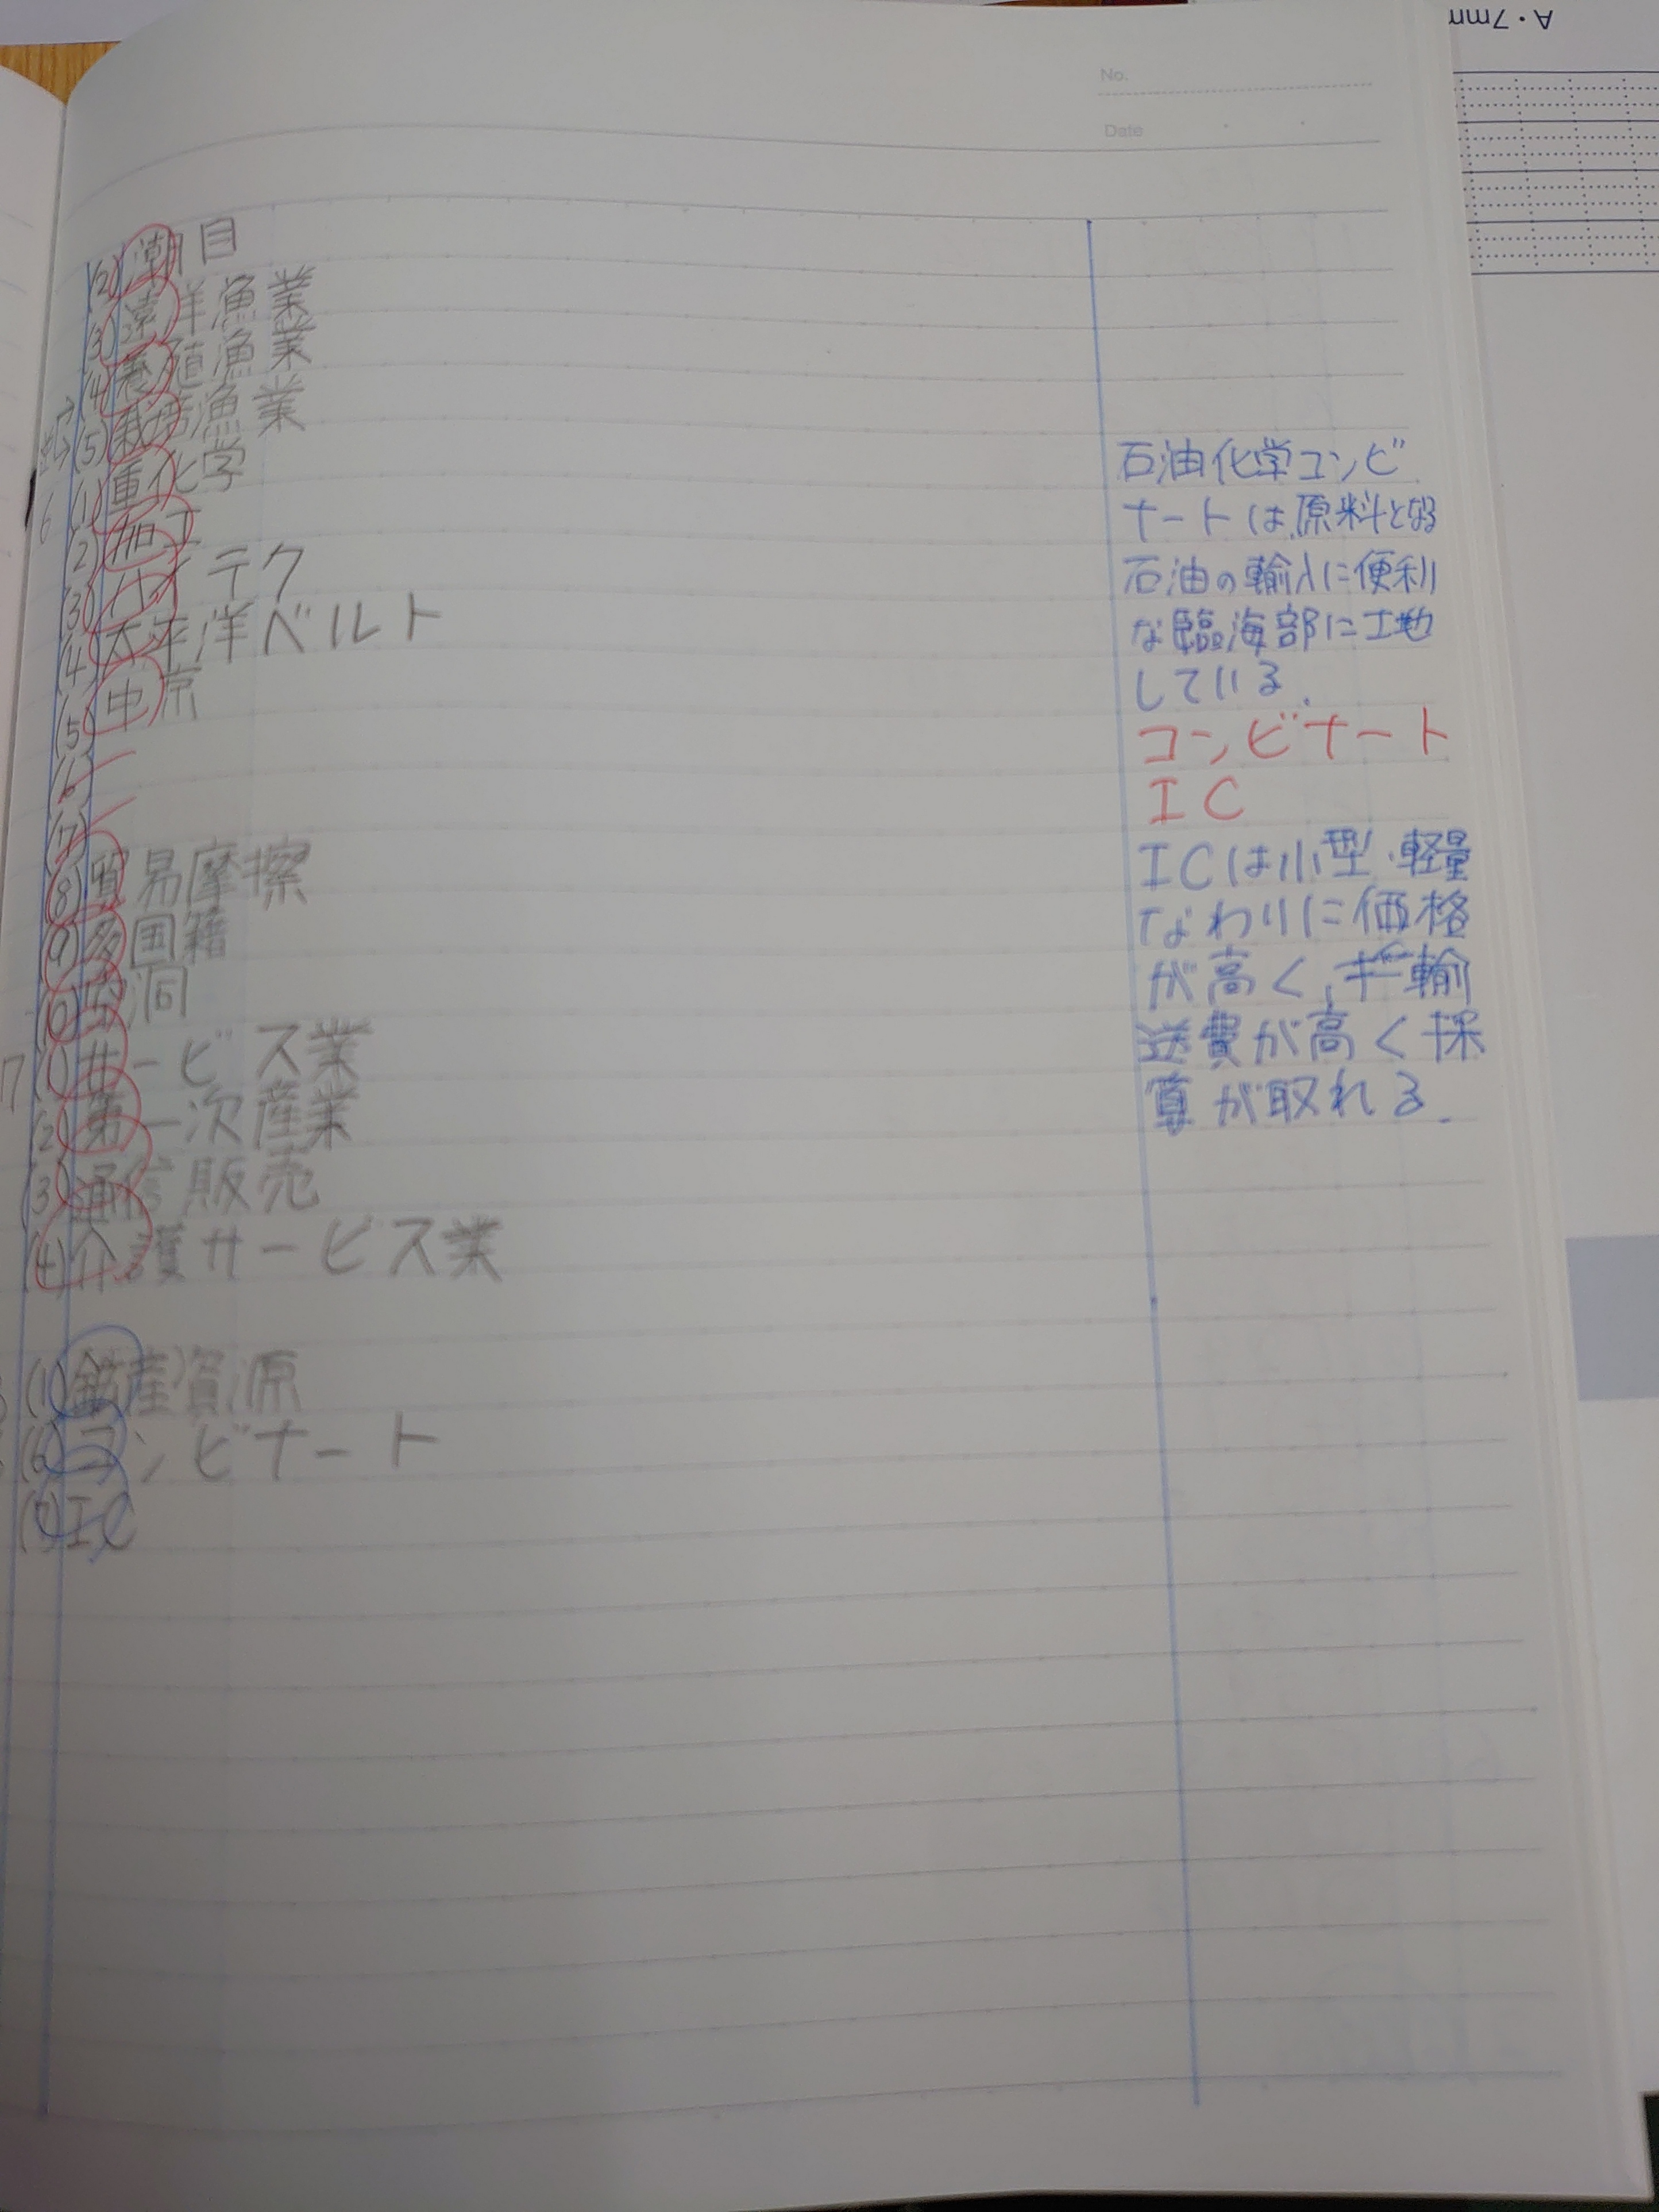 A・7mm
No.
Date
(2) 潮目
(3) 遠洋漁業
(4) 養殖漁業
(5) 栽培漁業
6 (1) 重化学
(2) 加工
(3) ハイテク
(4) 太平洋ベルト
(5) 中京
(6)
(7)
(8) 貿易摩擦
(9) 多国籍
(10) 空洞
7 (1) サービス業
(2) 第一次産業
(3) 通信販売
(4) 介護サービス業
(1) 鉱産資源
(6) コンビナート
(7) IC
石油化学コンビ
ナートは、原料となる
石油の輸入に便利
な臨海部に土地
している。
コンビナート
IC
ICは小型・軽量
なわりに価格
が高く、輸
送費が高く採
算が取れる。